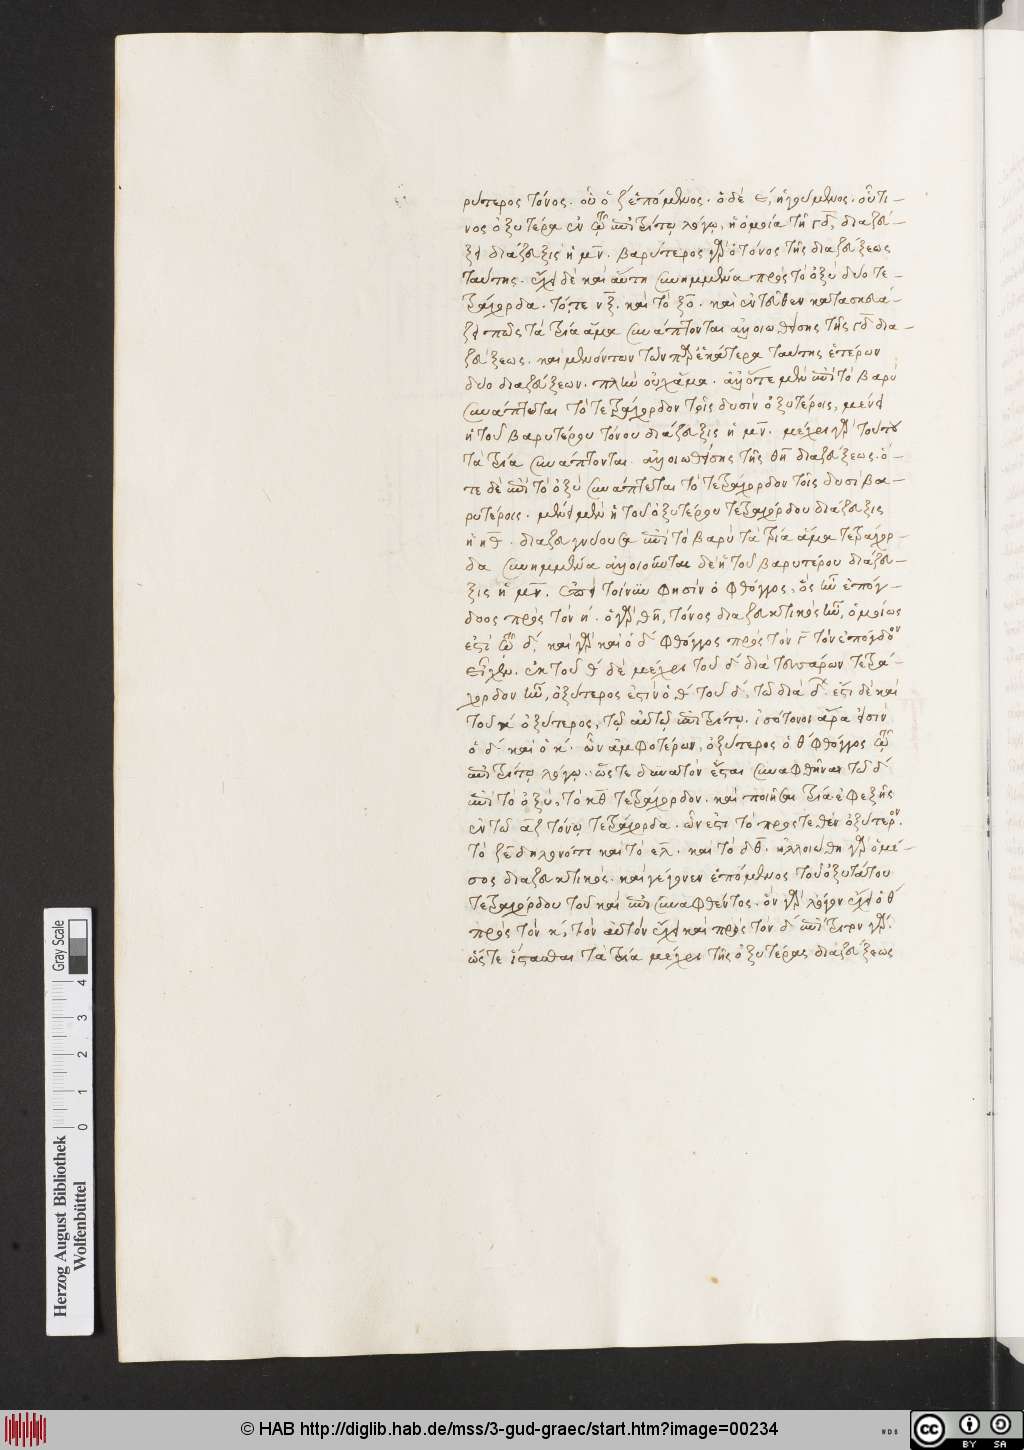 ρύτερος τόνος· οὗ ὁ ζ ἑπόμενος· ὁ δὲ ε, ἡγούμενος· οὗτι-
νος ὀξυτέρα ἐν λόγῳ, ἡ ὁμοία τῇ γδ, διαζεύ-
ξει διάζευξις ἡ μν. βαρύτερος γὰρ ὁ τόνος τῆς διαζεύξεως
ταύτης· ἔχει δὲ καὶ αὕτη συνημμένα πρὸς τὸ ὀξὺ δύο τε-
τράχορδα· τό, τε νξ· καὶ τὸ ξο· καὶ ἐντεῦθεν κατασκευά-
ζει πῶς τὰ τρία ἅμα συνάπτονται ἀγνοιωθείσης τῆς γδ δια-
ζεύξεως· καὶ μενόντων τῶν παρ' ἑκάτερα ταύτης ἑτέρων
δύο διαζεύξεων· πλὴν οὐχ ἅμα· ἀλλ' ὅτε μὲν ἐπὶ τὸ βαρὺ
συνάπτεται τὸ τετράχορδον τοῖς δυσὶν ὀξυτέροις, μένει
ἡ τοῦ βαρυτέρου τόνου διάζευξις ἡ μν. μέχρι γὰρ τούτου
τὰ τρία συνάπτονται· τῆς θη διαζεύξεως· ὁ-
τε δὲ ἐπὶ τὸ ὀξὺ συνάπτεται τὸ τετράχορδον τοῖς δυσὶ βα-
ρυτέροις· μένει μὲν ἡ τοῦ ὀξυτέρου τετραχόρδου διάζευξις
ἡ ηθ· διαζευγνύουσα ἐπὶ τὸ βαρὺ τὰ τρία ἅμα τετράχορ-
δα συνημμένα δὲ ἡ τοῦ βαρυτέρου διάζευ-
ξις ἡ μν. τοίνυν φησὶν ὁ φθόγγος, ὃς ἦν ἐπόγ-
δοος πρὸς τὸν η· ὁ γὰρ θη, τόνος διαζευκτικὸς ἦν, ὁμοίως
ἐστὶ τῷ δ, καὶ γὰρ καὶ ὁ δ φθόγγος πρὸς τὸν γ τὸν ἐπόγδοον
εἶχεν. ἐκ τοῦ θ δὲ μέχρι τοῦ δ διὰ τεσσάρων τετρά-
χορδον ἦν, ὀξύτερος ἐστὶν ὁ θ τοῦ δ, τῷ διὰ δ· ἔστι δὲ καὶ
τοῦ κ ὀξύτερος, τῷ αὐτῷ ἐπιτρίτῳ. ἰσότονοι ἄρα εἰσὶν
ὁ δ καὶ ὁ κ· ὧν ἀμφοτέρων, ὀξύτερος ὁ θ φθόγγος
ἐπιτρίτῳ λόγῳ· ὥστε δυνατὸν ἔσται συναφθῆναι τῷ δ
ἐπὶ τὸ ὀξύ, τὸ κθ τετράχορδον· καὶ ποιῆσαι τρία ἐφεξῆς
ἐν τῷ αζ τόνῳ τετράχορδα· ὧν ἐστὶ τὸ προστεθὲν ὀξύτερον.
τὸ ζε δηλονότι καὶ τὸ ελ· καὶ τὸ δθ· ἠλλοιώθη γὰρ ὁ μέ-
σος διαζευκτικός· καὶ γέγονεν ἑπόμενος τοῦ ὀξυτάτου
τετραχόρδου τοῦ καὶ ἐπισυναφθέντος· ὃν γὰρ λόγον ἔχει ὁ θ
πρὸς τὸν κ, τὸν αὐτὸν ἔχει καὶ πρὸς τὸν δ ἐπίτριτον γάρ.
ὥστε ἵστασθαι τὰ τρία μέχρι τῆς ὀξυτέρας διαζεύξεως
Herzog August Bibliothek
Wolfenbüttel
0 1 2 3 4
Gray Scale
© HAB http://diglib.hab.de/mss/3-gud-graec/start.htm?image=00234
cc BY SA